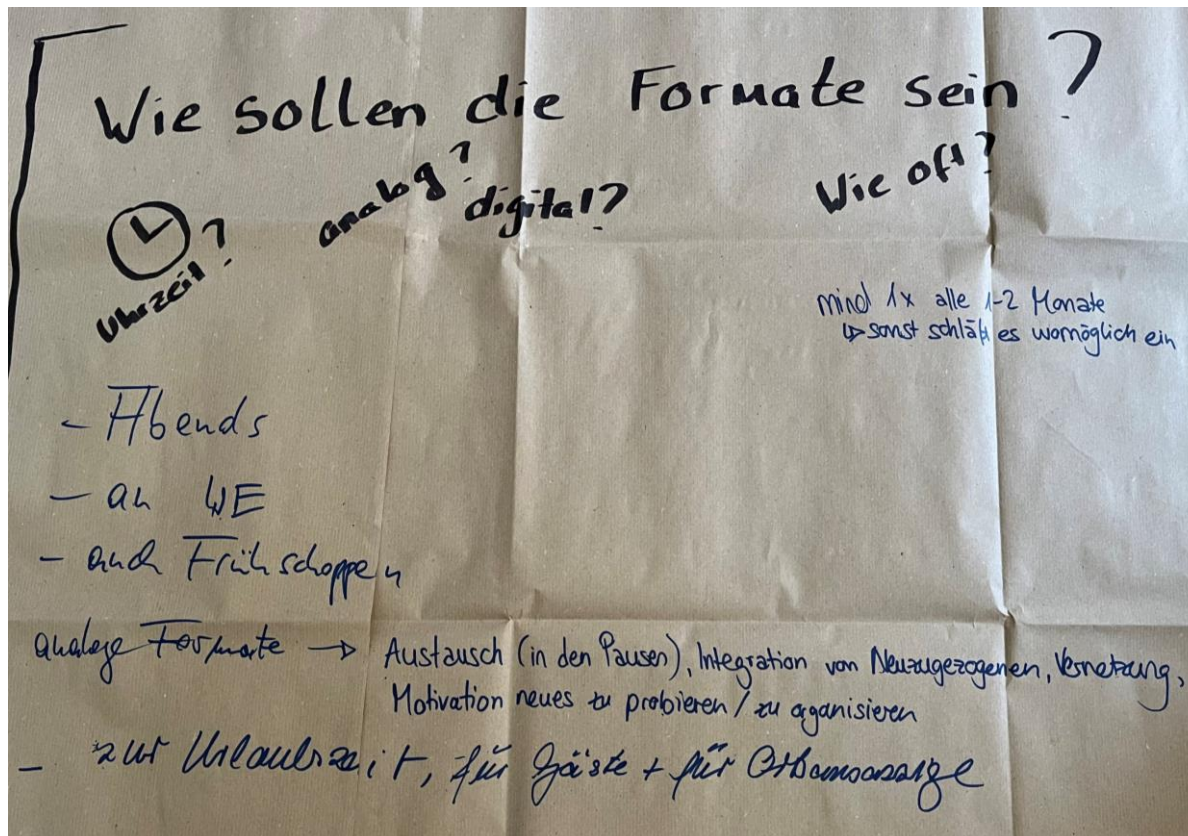 Wie sollen die Formate sein?
Uhrzeit?
analog?
digital?
Wie oft?
mind 1x alle 1-2 Monate
↳ sonst schläft es womöglich ein
- Abends
- an WE
- auch Frühschoppen
analoge Formate → Austausch (in den Pausen), Integration von Neuzugezogenen, Vernetzung,
Motivation neues zu probieren / zu organisieren
- zur Urlaubszeit, für Gäste + für